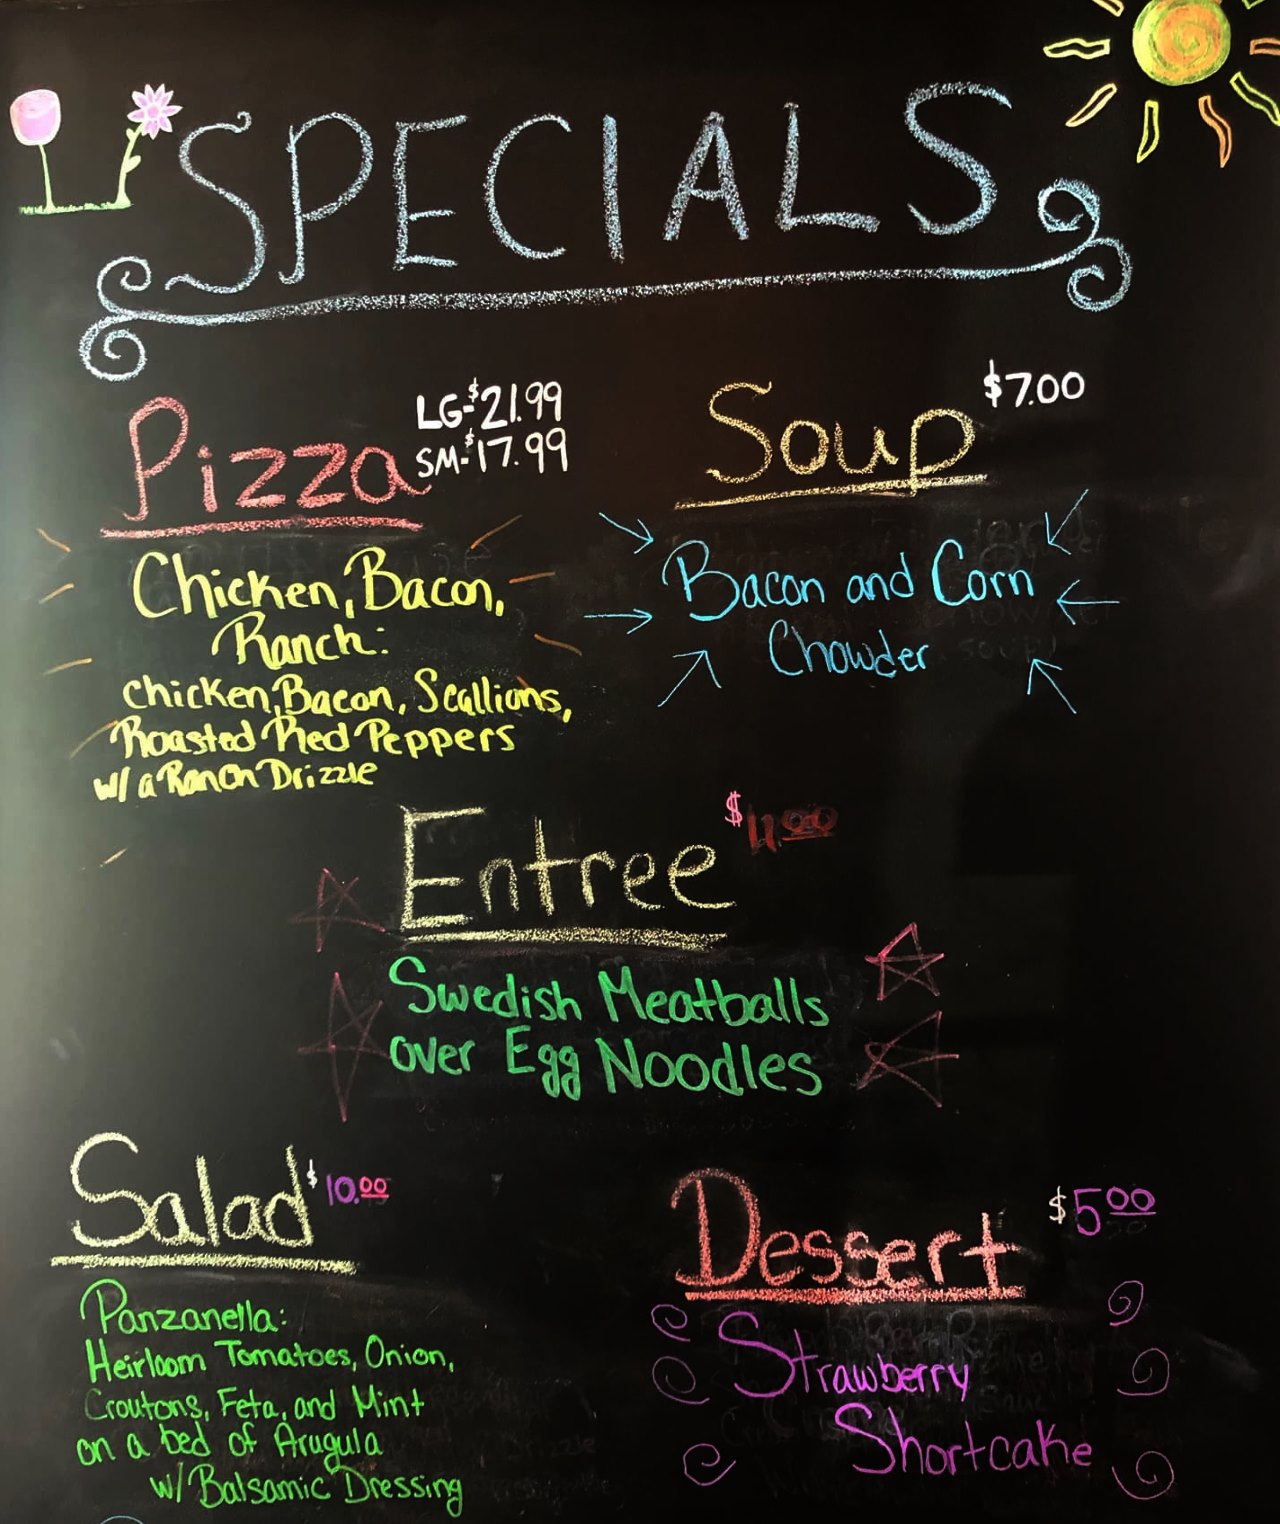 SPECIALS
Pizza
LG-$21.99
SM-$17.99
Chicken, Bacon,
Ranch:
chicken, Bacon, Scallions,
Roasted Red Peppers
w/ a Ranch Drizzle
Soup
$7.00
Bacon and Corn
Chowder
Entree
$11.00
Swedish Meatballs
over Egg Noodles
Salad
$10.00
Panzanella:
Heirloom Tomatoes, Onion,
Croutons, Feta, and Mint
on a bed of Arugula
w/ Balsamic Dressing
Dessert
$5.00
Strawberry
Shortcake